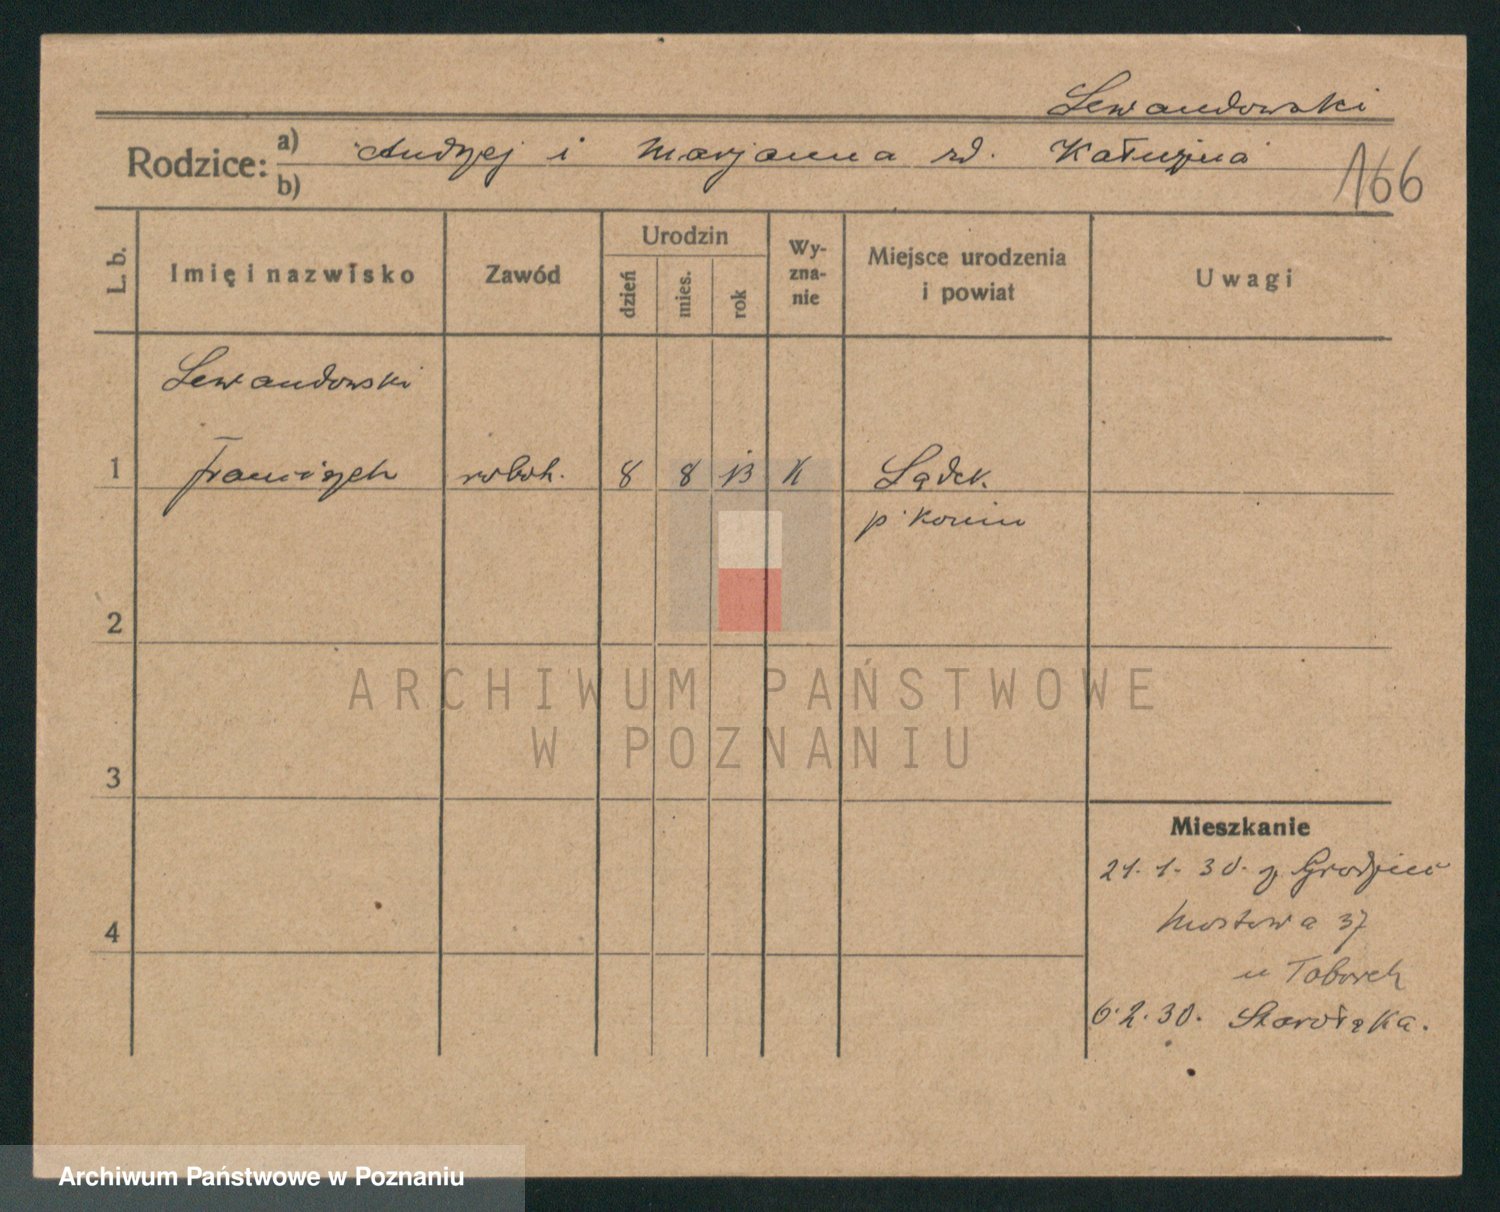 Lewandowski
Rodzice: a) Andrzej i Marjanna zd. Kałużna
b)
166
L. b. Imię i nazwisko Zawód Urodzin dzień mies. rok Wy-zna-nie Miejsce urodzenia i powiat Uwagi
Lewandowski
1 Franciszek robotn. 8 8 13 K Lądek.
p. Konin
2
ARCHIWUM PAŃSTWOWE
W POZNANIU
3
Mieszkanie
21. 1. 30. z Grodziec
4 Mostowa 37
u Taborek
6. 2. 30. Starołęka.
Archiwum Państwowe w Poznaniu